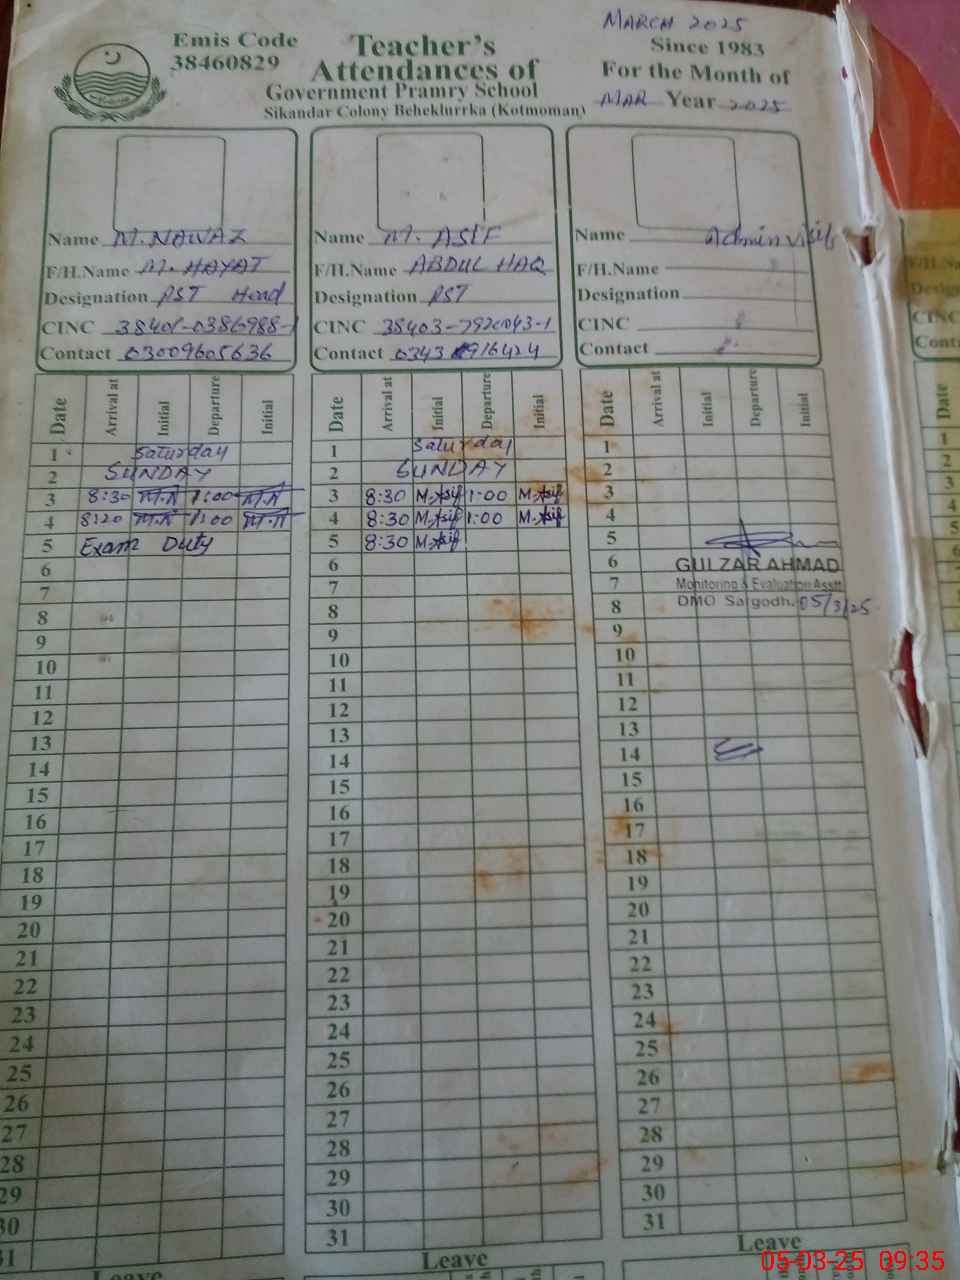 MARCH 2025
Emis Code
38460829
Teacher's
Attendances of
Government Pramry School
Sikandar Colony Beheklurrka (Kotmoman)
Since 1983
For the Month of
MAR Year 2025
Name M. NAWAZ
F/H.Name M. HAYAT
Designation PST Head
CINC 38401-0386988-1
Contact 03009605636
Name M. ASIF
F/H.Name ABDUL HAQ
Designation PST
CINC 38403-
Contact 0343
Name Admin visit
F/H.Name
Designation
CINC
Contact
Date Arrival at Initial Departure Initial
1 Saturday
2 SUNDAY
3 8:30 M.N 1:00 M.N
4 8:20 M.N 1:00 M.N
5 Exam Duty
6
7
8
9
10
11
12
13
14
15
16
17
18
19
20
21
22
23
24
25
26
27
28
29
30
31
Leave
Date Arrival at Initial Departure Initial
1 Saturday
2 SUNDAY
3 8:30 M.Asif 1:00 M.Asif
4 8:30 M.Asif 1:00 M.Asif
5 8:30 M.Asif
6
7
8
9
10
11
12
13
14
15
16
17
18
19
20
21
22
23
24
25
26
27
28
29
30
31
Leave
Date Arrival at Initial Departure Initial
1
2
3
4
5
6 GULZAR AHMAD
7 Monitoring & Evaluation Asstt
8 DMO Sargodh. 05/3/25
9
10
11
12
13
14
15
16
17
18
19
20
21
22
23
24
25
26
27
28
29
30
31
Leave
F/H.Na
Desig
CINC
Conta
Date
1
2
3
4
5
6
05-03-25 09:35